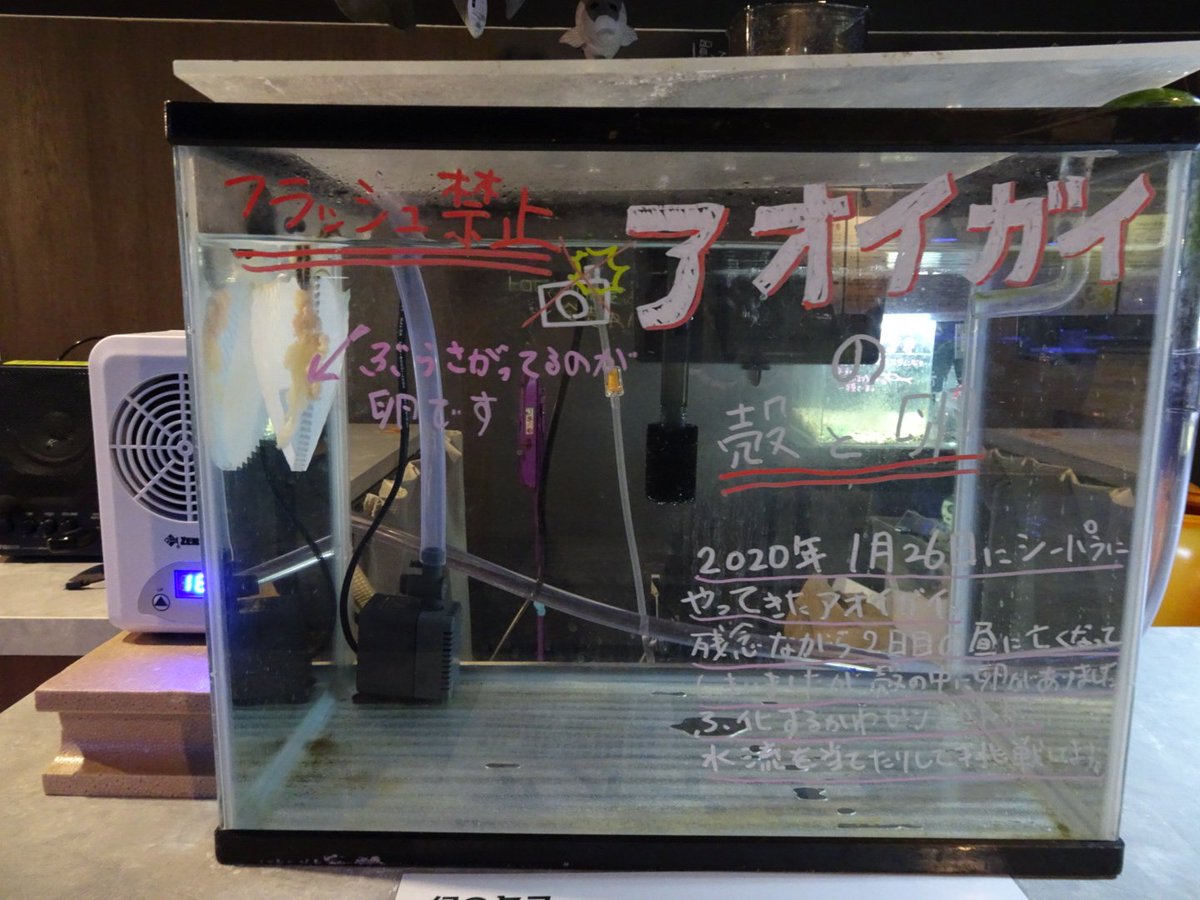 フラッシュ禁止
アオイガイ
の
殻と卵
ぶらさがってるのが
卵です
2020年 1月26日にシーパラに
やってきたアオイガイ。
残念ながら2日目の昼に亡くなって
しまいましたが殻の中に卵がありました
ふ化するかわか
水流を当てたりして挑戦します。
ZEN